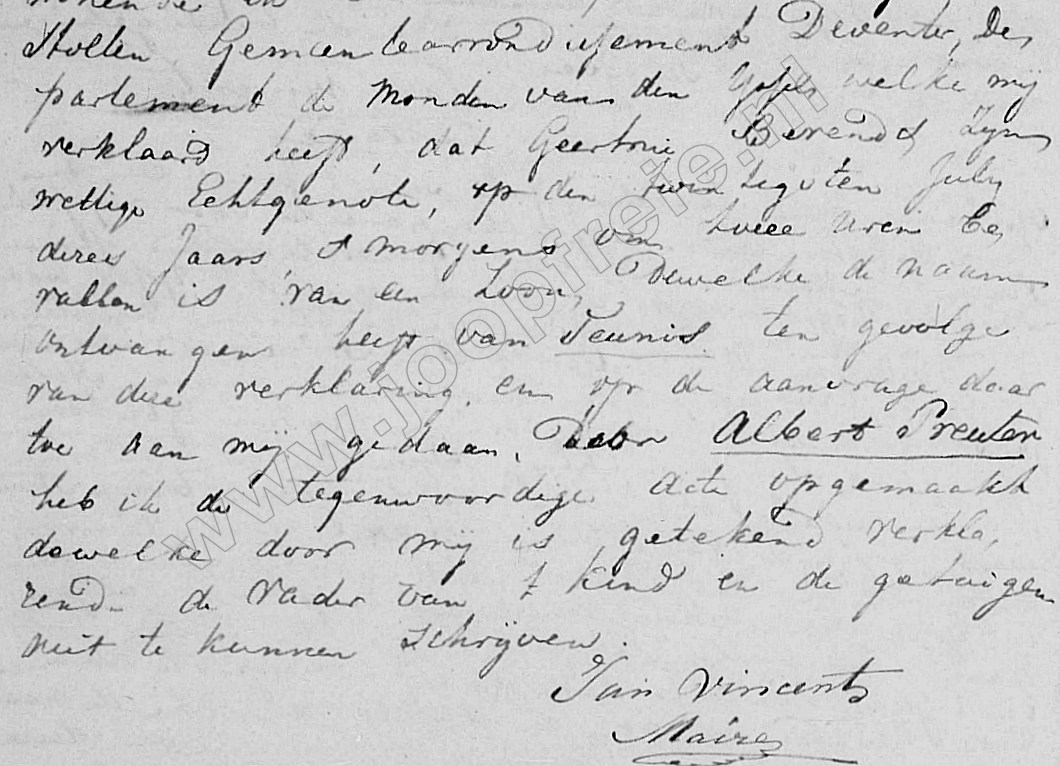 Holten Gemeente arrondissement Deventer, De
partement de Monden van den Yssel welke mij
verklaard heeft, dat Geertrui Berends zyn
wettige Echtgenote, op den twintigsten July
dezes Jaars, s morgens om twee uren be
vallen is van een Zoon, Dewelke de naam
ontvangen heeft van Teunis ten gevolge
van deze verklaring, en op de aanvrage daar
toe aan mij gedaan, Door Albert Preuter
heb ik de tegenwoordige acte opgemaakt
dewelke door mij is getekend verkla,
rende de Vader van t kind en de getuigen
niet te kunnen schrijven.
Jan Vincents
Maire
www.joopfreie.nl